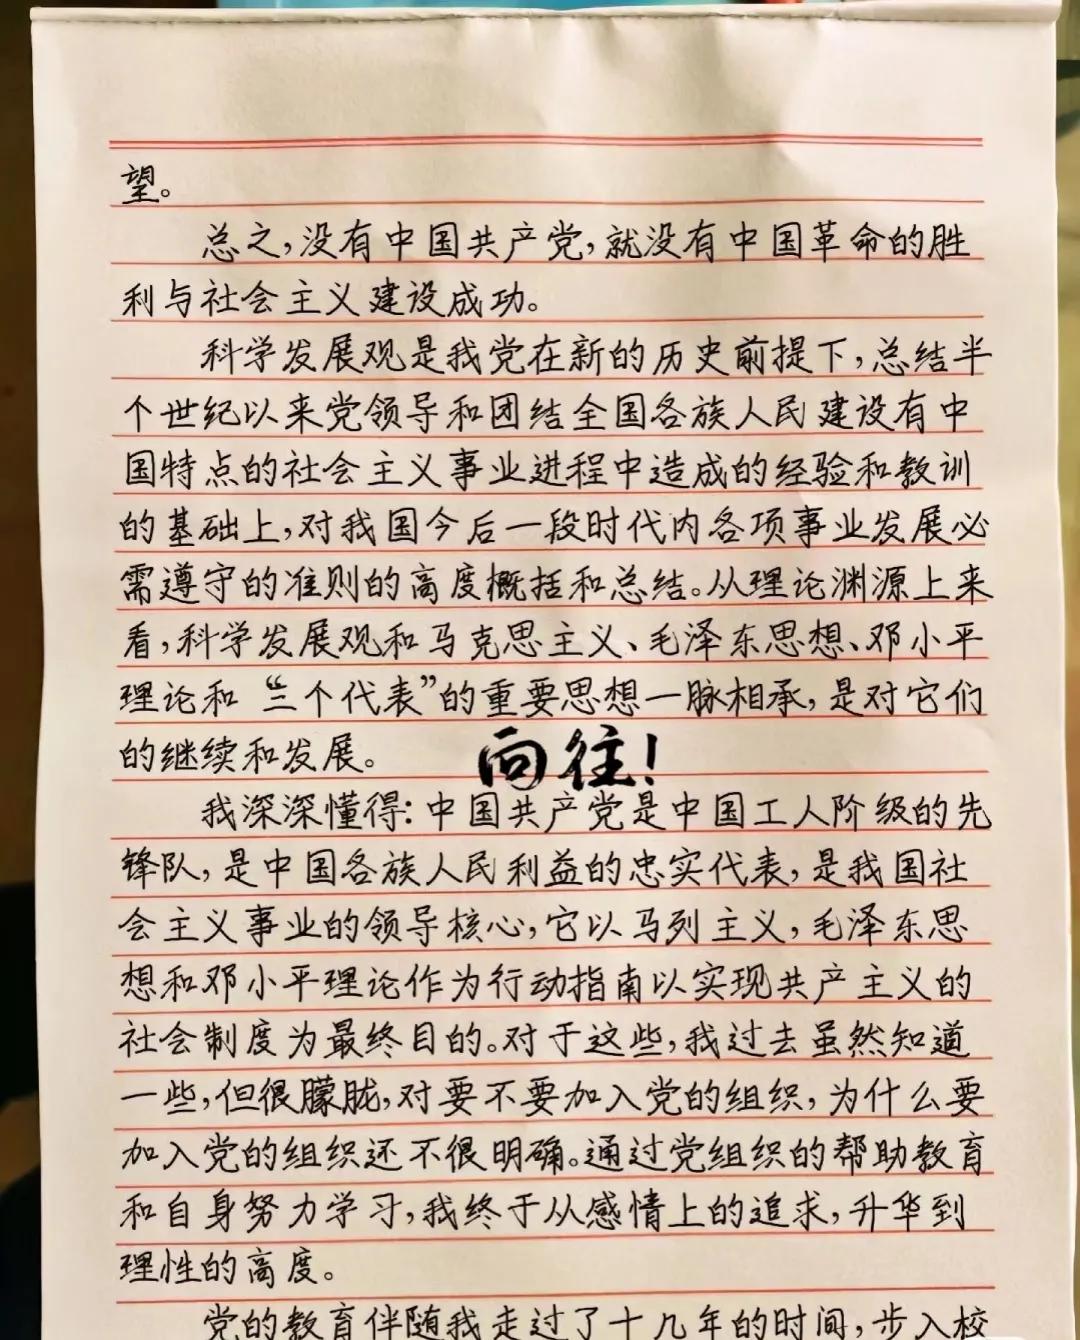 望。
总之，没有中国共产党，就没有中国革命的胜
利与社会主义建设成功。
科学发展观是我党在新的历史前提下，总结半
个世纪以来党领导和团结全国各族人民建设有中
国特点的社会主义事业进程中造成的经验和教训
的基础上，对我国今后一段时代内各项事业发展必
需遵守的准则的高度概括和总结。从理论渊源上来
看，科学发展观和马克思主义、毛泽东思想、邓小平
理论和“三个代表”的重要思想一脉相承，是对它们
的继续和发展。
向往！
我深深懂得：中国共产党是中国工人阶级的先
锋队，是中国各族人民利益的忠实代表，是我国社
会主义事业的领导核心，它以马列主义，毛泽东思
想和邓小平理论作为行动指南以实现共产主义的
社会制度为最终目的。对于这些，我过去虽然知道
一些，但很朦胧，对要不要加入党的组织，为什么要
加入党的组织还不很明确。通过党组织的帮助教育
和自身努力学习，我终于从感情上的追求，升华到
理性的高度。
党的教育伴随我走过了十几年的时间，步入校